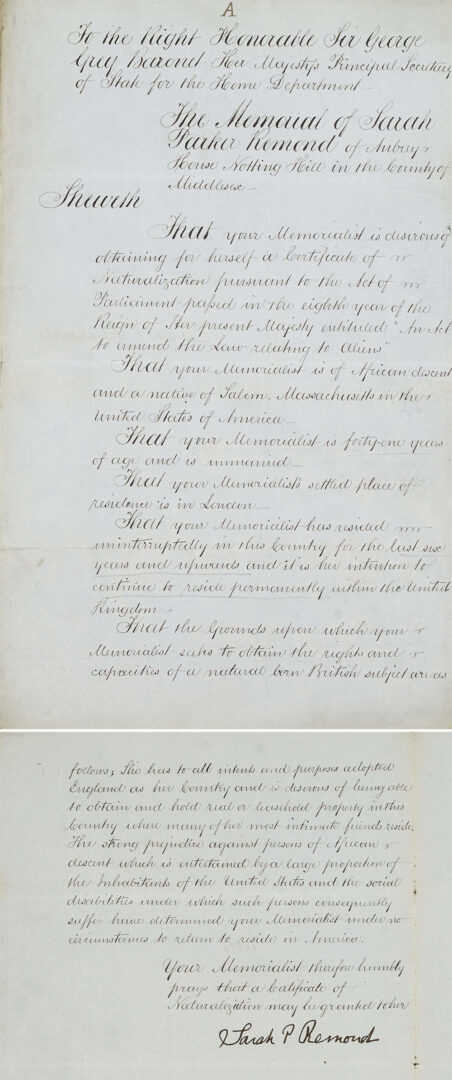 A
To the Right Honerable Sir George
Grey Baronet Her Majestys Principal Secretary
of State for the Home Department
The Memorial of Sarah
Parker Remond of Aubrey
House Notting Hill in the County of
Middlesex
Sheweth
That your Memorialist is desirous of
obtaining for herself a Certificate of
Naturalization pursuant to the Act of
Parliament passed in the eighth year of the
Reign of Her present Majesty entituled "An Act
to amend the Law relating to Aliens"
That your Memorialist is of African descent
and a native of Salem, Massachusetts in the
United States of America
That your Memorialist is forty-one years
of age and is unmarried
That your Memorialists settled place of
residence is in London
That your Memorialist has resided
uninterruptedly in this Country for the last six
years and upwards and it is her intention to
continue to reside permanently within the United
Kingdom
That the Grounds upon which your
Memorialist seeks to obtain the rights and
capacities of a natural born British subject are as
follows; She has to all intents and purposes adopted
England as her Country and is desirous of being able
to obtain and hold real or leasehold property in this
Country where many of her most intimate friends reside.
The strong prejudice against persons of African
descent which is entertained by a large proportion of
the Inhabitants of the United States and the social
disabilities under which such persons consequently
suffer have determined your Memorialist under no
circumstances to return to reside in America.
Your Memorialist therefore humbly
prays that a Certificate of
Naturalization may be granted to her
Sarah P Remond